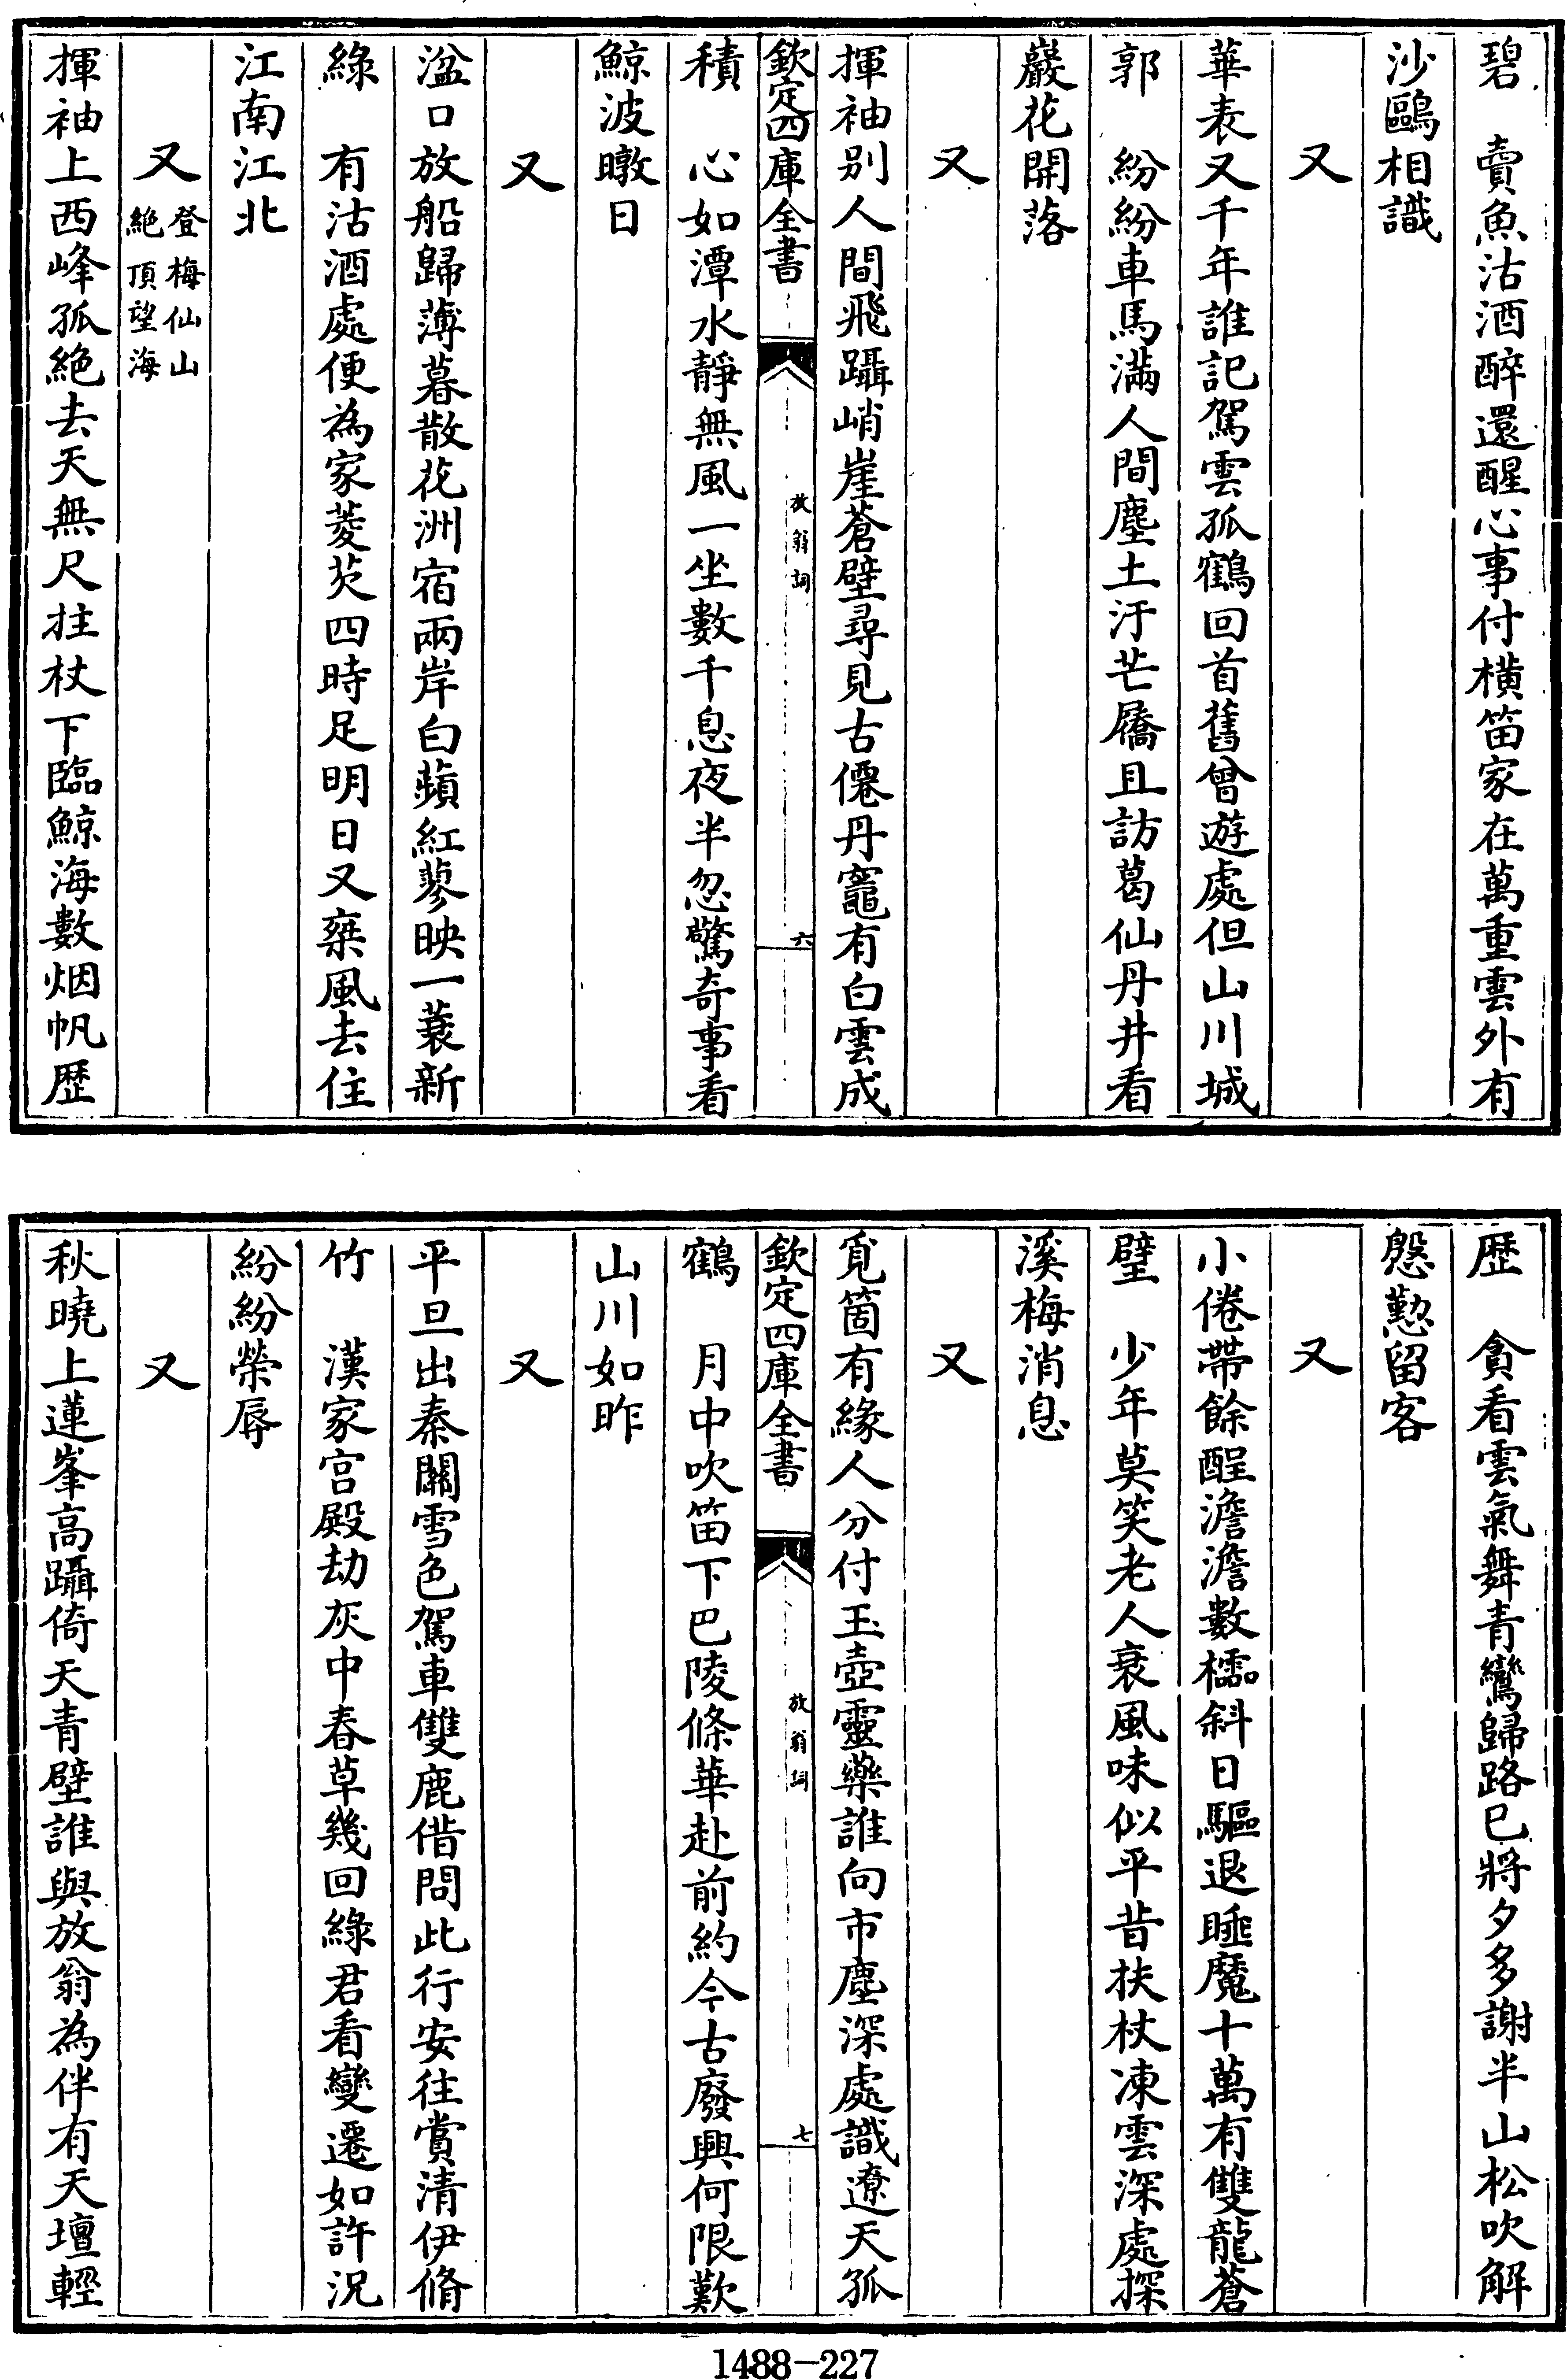 碧　賣魚沽酒醉還醒心事付横笛家在萬重雲外有
沙鷗相識
又
華表又千年誰記駕雲孤鶴回首舊曾遊處但山川城
郭　紛紛車馬滿人間塵土汙芒屩且訪葛仙丹井看
巖花開落
又
揮袖别人間飛躡峭崖蒼壁尋見古僊丹竈有白雲成
欽定四庫全書
放翁詞
六
積　心如潭水靜無風一坐數千息夜半忽驚奇事看
鯨波暾日
又
湓口放船歸薄暮散花洲宿兩岸白蘋紅蓼映一蓑新
綠　有沽酒處便為家菱芡四時足明日又椉風去住
江南江北
又 登梅仙山
絶頂望海
揮袖上西峰孤絶去天無尺拄杖下臨鯨海數烟帆歴
歴　貪看雲氣舞青鸞歸路已將夕多謝半山松吹解
慇懃留客
又
小倦帶餘酲澹澹數櫺斜日驅退睡魔十萬有雙龍蒼
璧　少年莫笑老人衰風味似平昔扶杖凍雲深處探
溪梅消息
又
覓箇有緣人分付玉壺靈藥誰向市塵深處識遼天孤
欽定四庫全書
放翁詞
七
鶴　月中吹笛下巴陵條華赴前約今古廢興何限歎
山川如昨
又
平旦出秦關雪色駕車雙鹿借問此行安往賞清伊脩
竹　漢家宫殿劫灰中春草幾回綠君看變遷如許況
紛紛榮辱
又
秋曉上蓮峯高躡倚天青壁誰與放翁為伴有天壇輕
1488-227